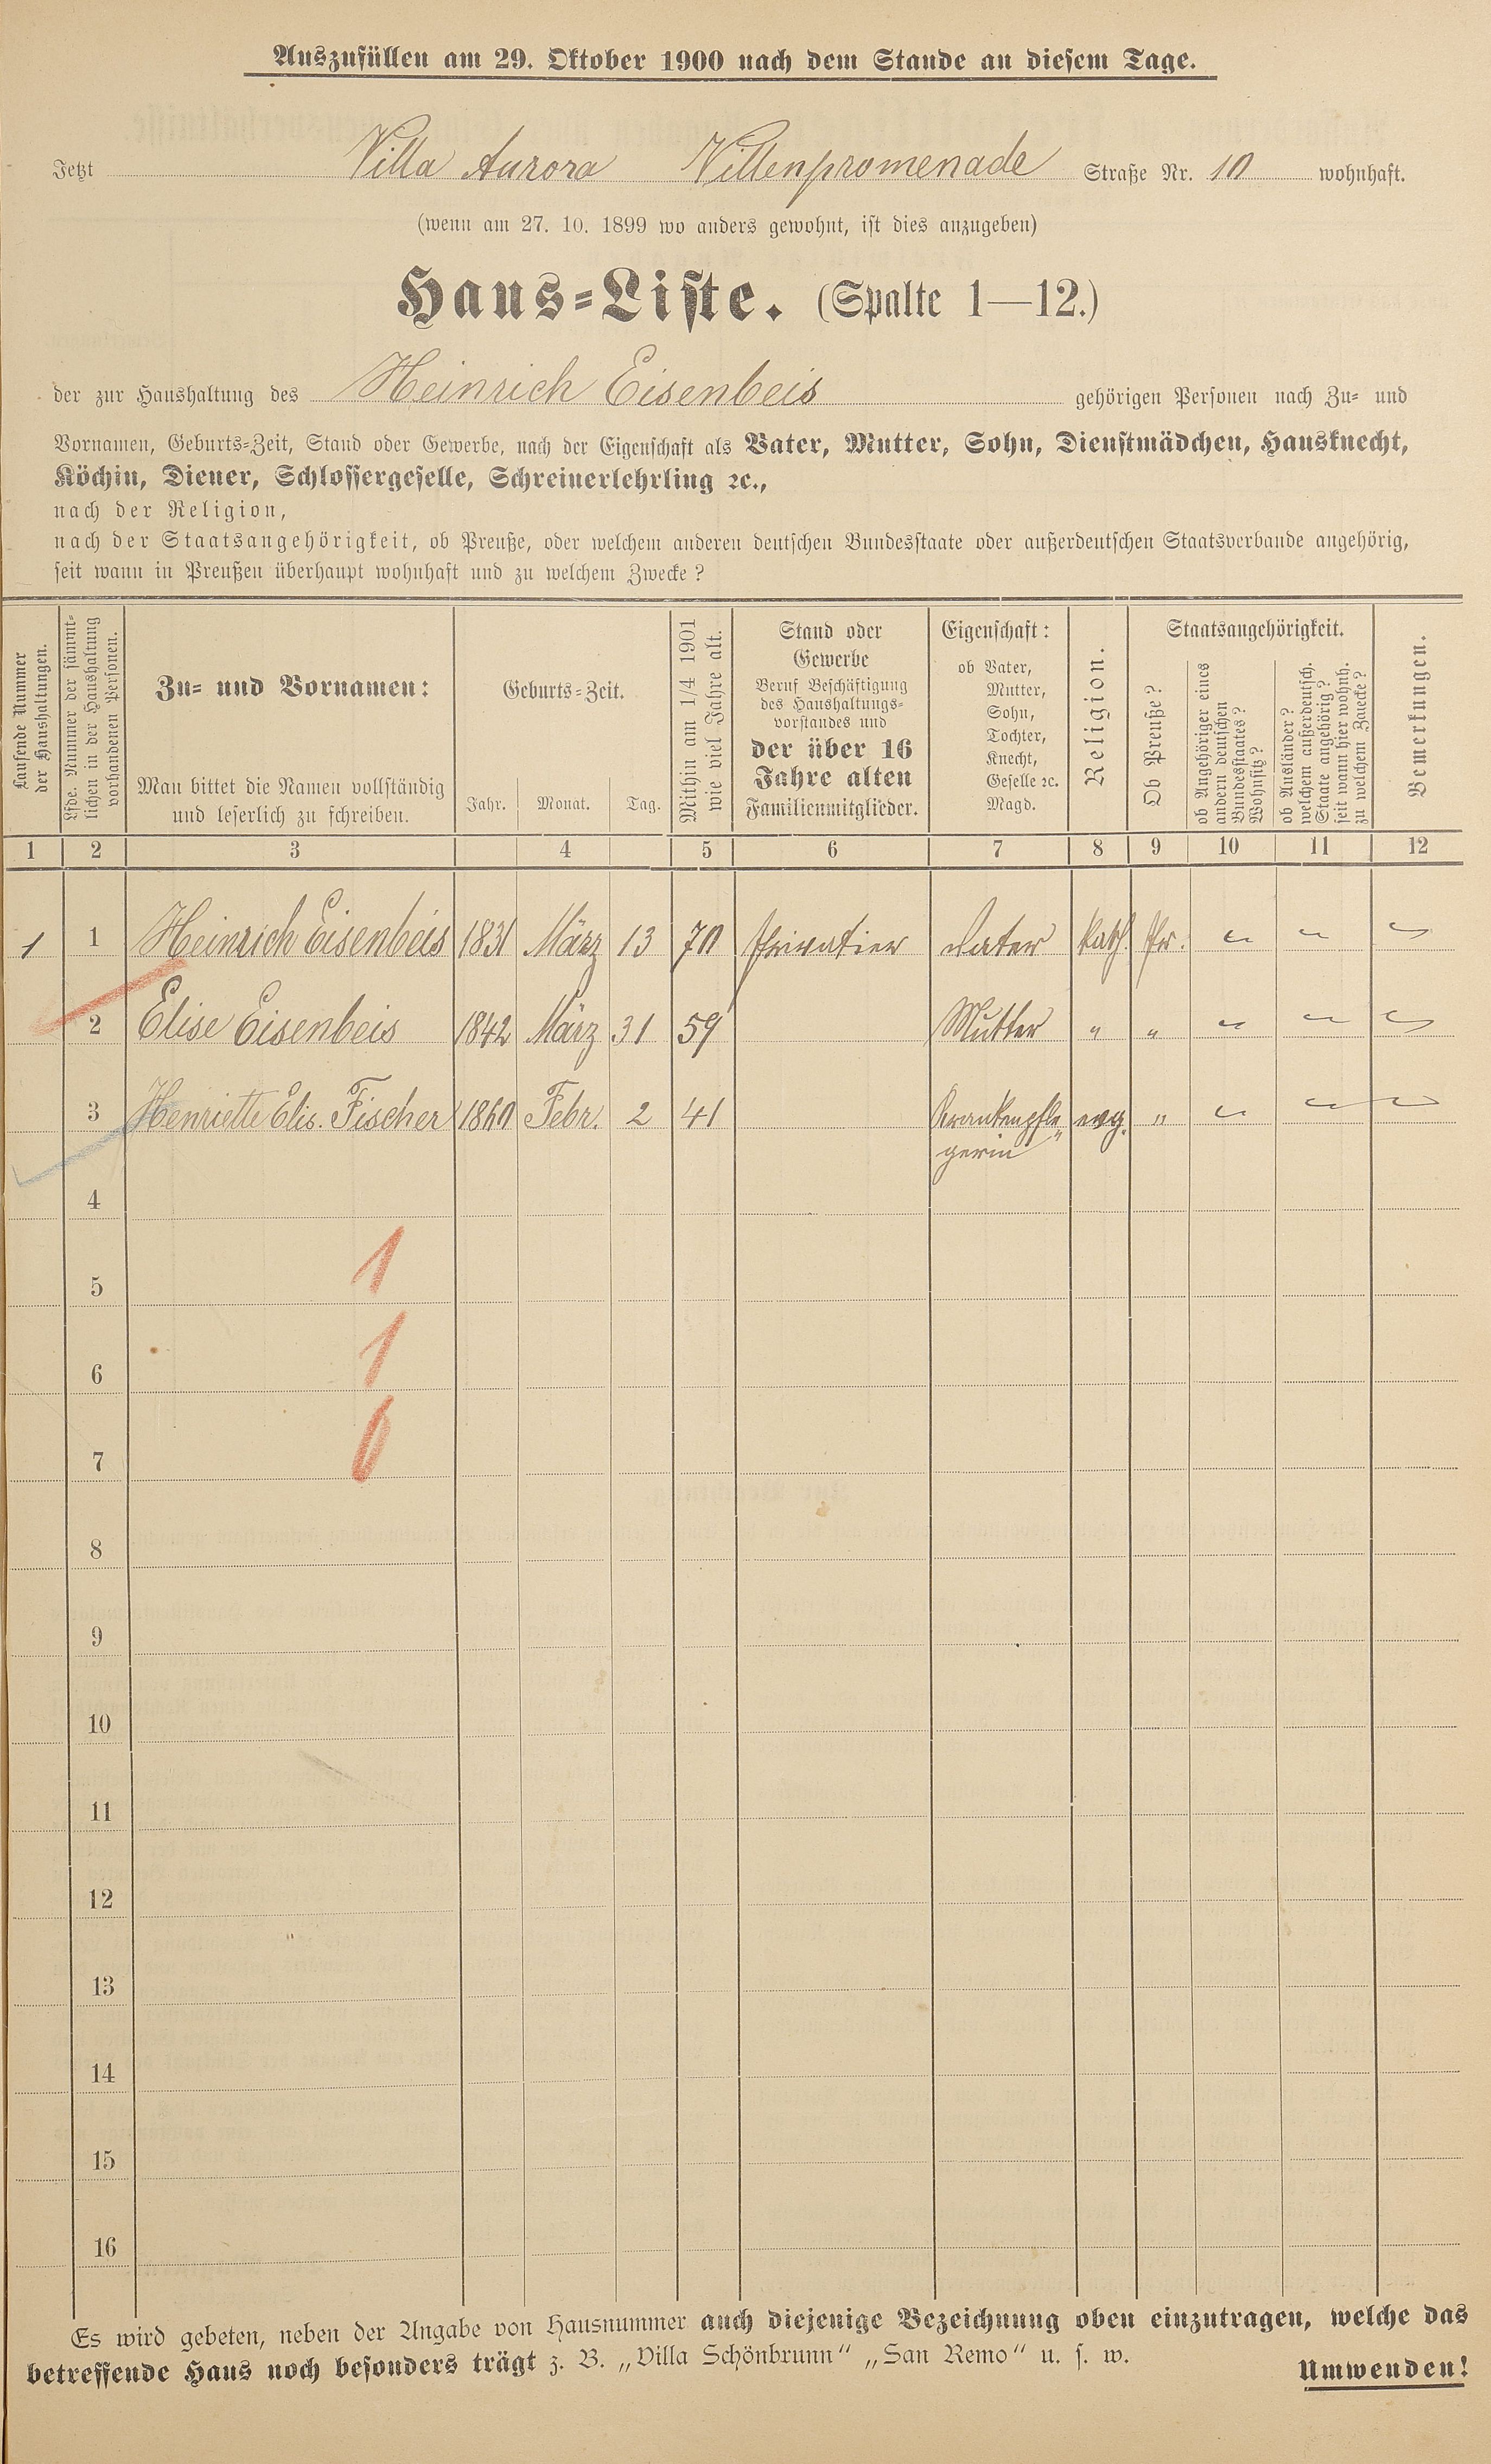 Auszufüllen am 29. Oktober 1900 nach dem Stande an diesem Tage.
Jetzt Villa Aurora Villenpromenade Straße Nr. 10 wohnhaft.
(wenn am 27. 10. 1899 wo anders gewohnt, ist dies anzugeben)
Haus-Liste. (Spalte 1—12.)
der zur Haushaltung des Heinrich Eisenbeis gehörigen Personen nach Zu- und
Vornamen, Geburts-Zeit, Stand oder Gewerbe, nach der Eigenschaft als Vater, Mutter, Sohn, Dienstmädchen, Hausknecht,
Köchin, Diener, Schlossergeselle, Schreinerlehrling ꝛc.,
nach der Religion,
nach der Staatsangehörigkeit, ob Preuße, oder welchem anderen deutschen Bundesstaate oder außerdeutschen Staatsverbande angehörig,
seit wann in Preußen überhaupt wohnhaft und zu welchem Zwecke?
Laufende Nummer
der Haushaltungen.
Lfde. Nummer der sämmt-
lichen in der Haushaltung
vorhandenen Personen.
Zu- und Vornamen:
Man bittet die Namen vollständig
und leserlich zu schreiben.
Geburts-Zeit.
Jahr. Monat. Tag.
Mithin am 1/4 1901
wie viel Jahre alt.
Stand oder
Gewerbe
Beruf Beschäftigung
des Haushaltungs-
vorstandes und
der über 16
Jahre alten
Familienmitglieder.
Eigenschaft:
ob Vater,
Mutter,
Sohn,
Tochter,
Knecht,
Geselle ꝛc.
Magd.
Religion.
Staatsangehörigkeit.
Ob Preuße?
ob Angehöriger eines
andern deutschen
Bundesstaates?
Wohnsitz?
ob Ausländer?
welchem außerdeutsch.
Staate angehörig?
seit wann hier wohnh.
zu welchem Zwecke?
Bemerkungen.
1 2 3 4 5 6 7 8 9 10 11 12
1 1 Heinrich Eisenbeis 1831 März 13 70 Privatier Vater kath. Pr. " " "
2 Elise Eisenbeis 1842 März 31 59 Mutter " " " " "
3 Henriette Elis. Fischer 1860 Febr. 2 41 Krankenpfle„ evg. " " " "
gerin
4
1
5
1
6
0
7
8
9
10
11
12
13
14
15
16
Es wird gebeten, neben der Angabe von Hausnummer auch diejenige Bezeichnung oben einzutragen, welche das
betreffende Haus noch besonders trägt z. B. „Villa Schönbrunn“ „San Remo“ u. s. w.
Umwenden!